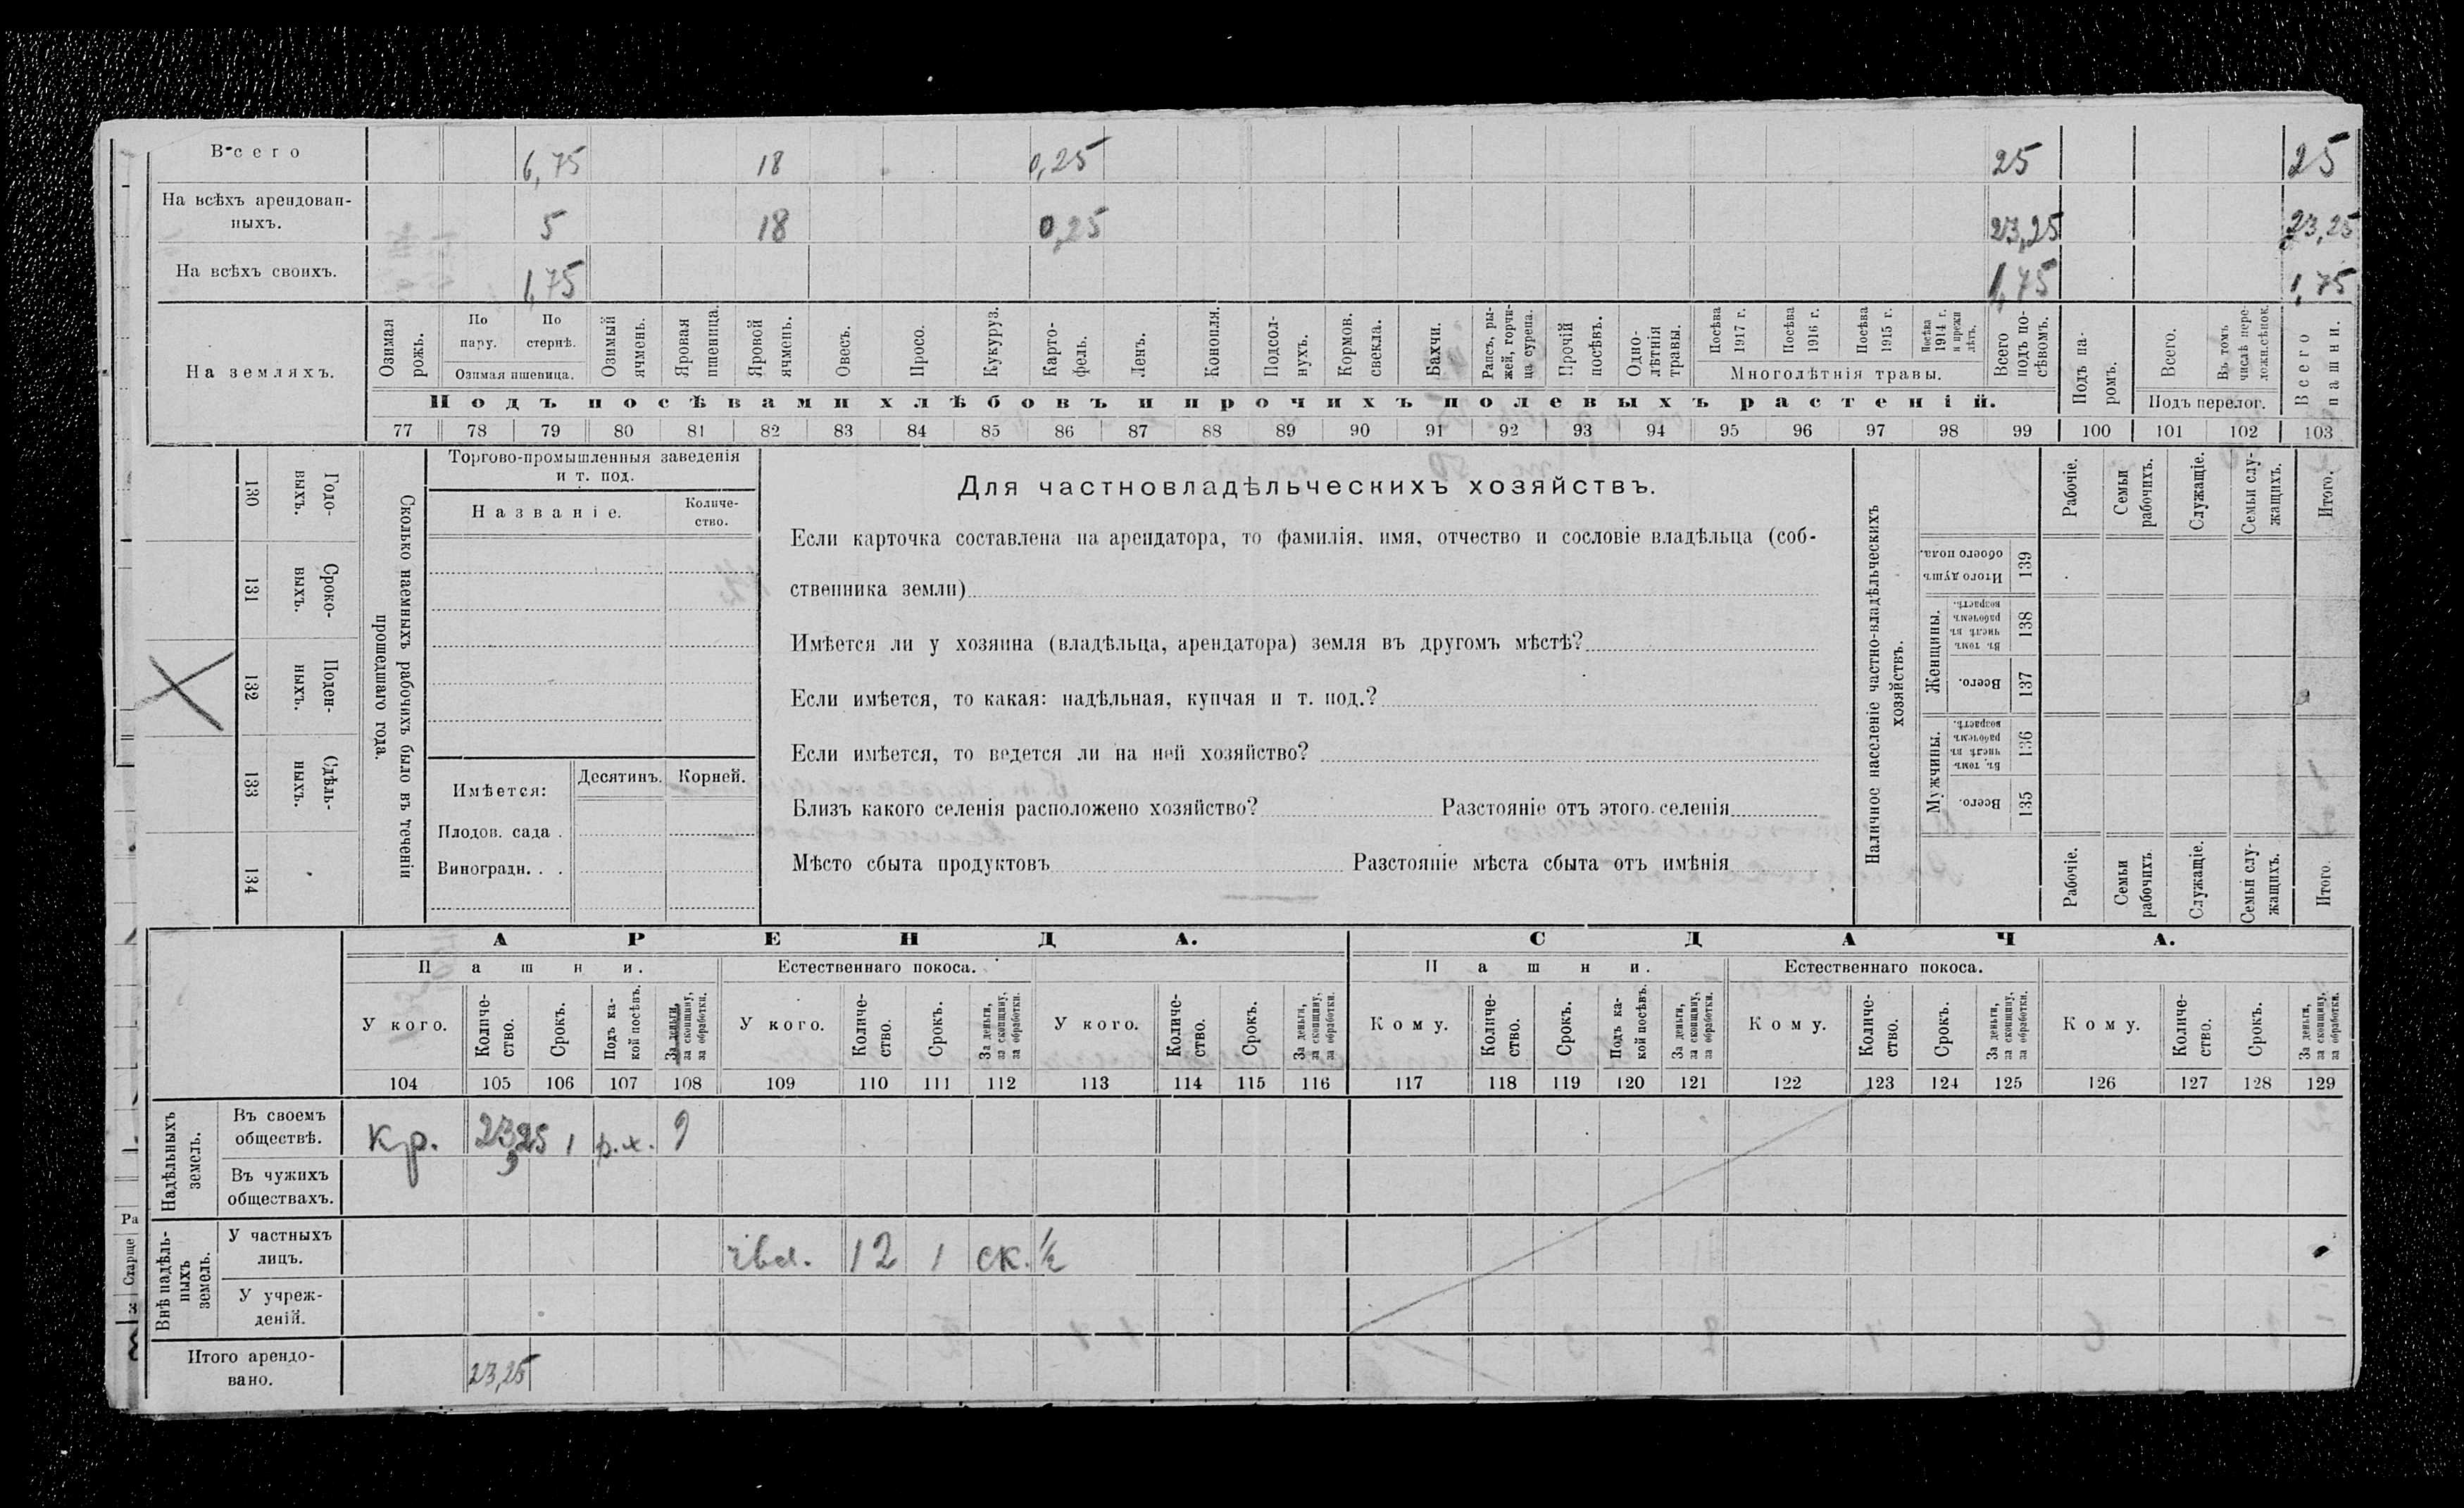 Всего 6,75 18 0,25 25 25
На всѣхъ арендован-
ныхъ. 5 18 0,25 23,25 23,25
На всѣхъ своихъ. 1,75 1,75 1,75
На земляхъ.
Озимая рожь.
По пару.
По стернѣ.
Озимая пшеница.
Озимый ячмень.
Яровая пшеница.
Яровой ячмень.
Овесъ.
Просо.
Кукуруз.
Карто-
фель.
Ленъ.
Конопля.
Подсол-
нухъ.
Кормов. свекла.
Бахчи.
Рапсъ, ры-
жей, горчи-
ца сурепа.
Прочій посѣвъ.
Одно-
лѣтнія травы.
Посѣва 1917 г.
Посѣва 1916 г.
Посѣва 1915 г.
Посѣва 1914 г. и прежн лѣтъ.
Многолѣтнія травы.
Всего подъ по-
сѣвомъ.
Подъ посѣвами хлѣбовъ и прочихъ полевыхъ растеній.
Подъ па-
ромъ.
Всего.
Въ томъ числѣ пере-
ложн.сѣнок.
Подъ перелог.
Всего пашни.
77 78 79 80 81 82 83 84 85 86 87 88 89 90 91 92 93 94 95 96 97 98 99 100 101 102 103
Сколько наемныхъ рабочихъ было въ теченіи
прошедшаго года.
Годо-
выхъ.
130
Сроко-
выхъ.
131
Поден-
ныхъ.
132
Сдѣль-
ныхъ.
133
134
Торгово-промышленныя заведенія
и т. под.
Названіе.
Количе-
ство.
Имѣется:
Десятинъ.
Корней.
Плодов. сада .
Виноградн. . .
Для частновладѣльческихъ хозяйствъ.
Если карточка составлена на арендатора, то фамилія, имя, отчество и сословіе владѣльца (соб-
ственника земли)
Имѣется ли у хозяина (владѣльца, арендатора) земля въ другомъ мѣстѣ?
Если имѣется, то какая: надѣльная, купчая и т. под.?
Если имѣется, то ведется ли на ней хозяйство?
Близъ какого селенія расположено хозяйство? Разстояніе отъ этого селенія
Мѣсто сбыта продуктовъ Разстояніе мѣста сбыта отъ имѣнія
Наличное населеніе частно-владѣльческихъ
хозяйствъ.
Рабочіе.
Семьи рабочихъ.
Служащіе.
Семьи слу-
жащихъ.
Итого.
Итого душъ обоего пола.
139
Женщины.
Въ томъ числѣ въ рабочемъ возрастѣ.
138
Всего.
137
Мужчины.
Въ томъ числѣ въ рабочемъ возрастѣ.
136
Всего.
135
Рабочіе.
Семьи рабочихъ.
Служащіе.
Семьи слу-
жащихъ.
Итого
АРЕНДА.
СДАЧА.
Пашни.
Естественнаго покоса.
Пашни.
Естественнаго покоса.
У кого.
Количе-
ство.
Срокъ.
Подъ ка-
кой посѣвъ.
За деньги,
за скопщину,
за обработки.
У кого.
Количе-
ство.
Срокъ.
За деньги,
за скопщину,
за обработки.
У кого.
Количе-
ство.
Срокъ.
За деньги,
за скопщину,
за обработки.
Кому.
Количе-
ство.
Срокъ.
Подъ ка-
кой посѣвъ.
За деньги,
за скопщину,
за обработки.
Кому.
Количе-
ство.
Срокъ.
За деньги,
за скопщину,
за обработки.
Кому.
Количе-
ство.
Срокъ.
За деньги,
за скопщину,
за обработки.
104 105 106 107 108 109 110 111 112 113 114 115 116 117 118 119 120 121 122 123 124 125 126 127 128 129
Надѣльныхъ
земель.
Въ своемъ
обществѣ.
Кр. 23,25 1 р.х. 9
Въ чужихъ
обществахъ.
Внѣ надѣль-
ныхъ
земель.
У частныхъ
лицъ.
12 1 ск. ½
У учреж-
деній.
Итого арендо-
вано. 23,25
Ра
Старше